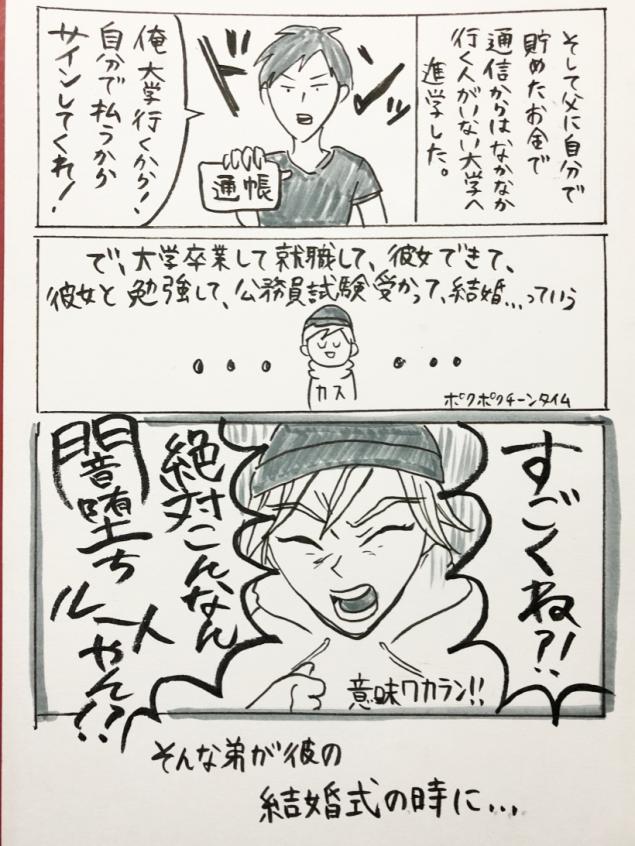 そして父に自分で
貯めたお金で
通信からはなかなか
行く人がいない大学へ
進学した。
ドンッ
通帳
俺大学行くから!
自分で払うから
サインしてくれ!
で、大学卒業して就職して、彼女できて、
彼女と勉強して、公務員試験受かって、結婚...っていう
カス
ポクポクチーンタイム
すごくね?!
絶対こんなん
闇堕ち
ルートやん!?
意味ワカラン!!
そんな弟が彼の
結婚式の時に...